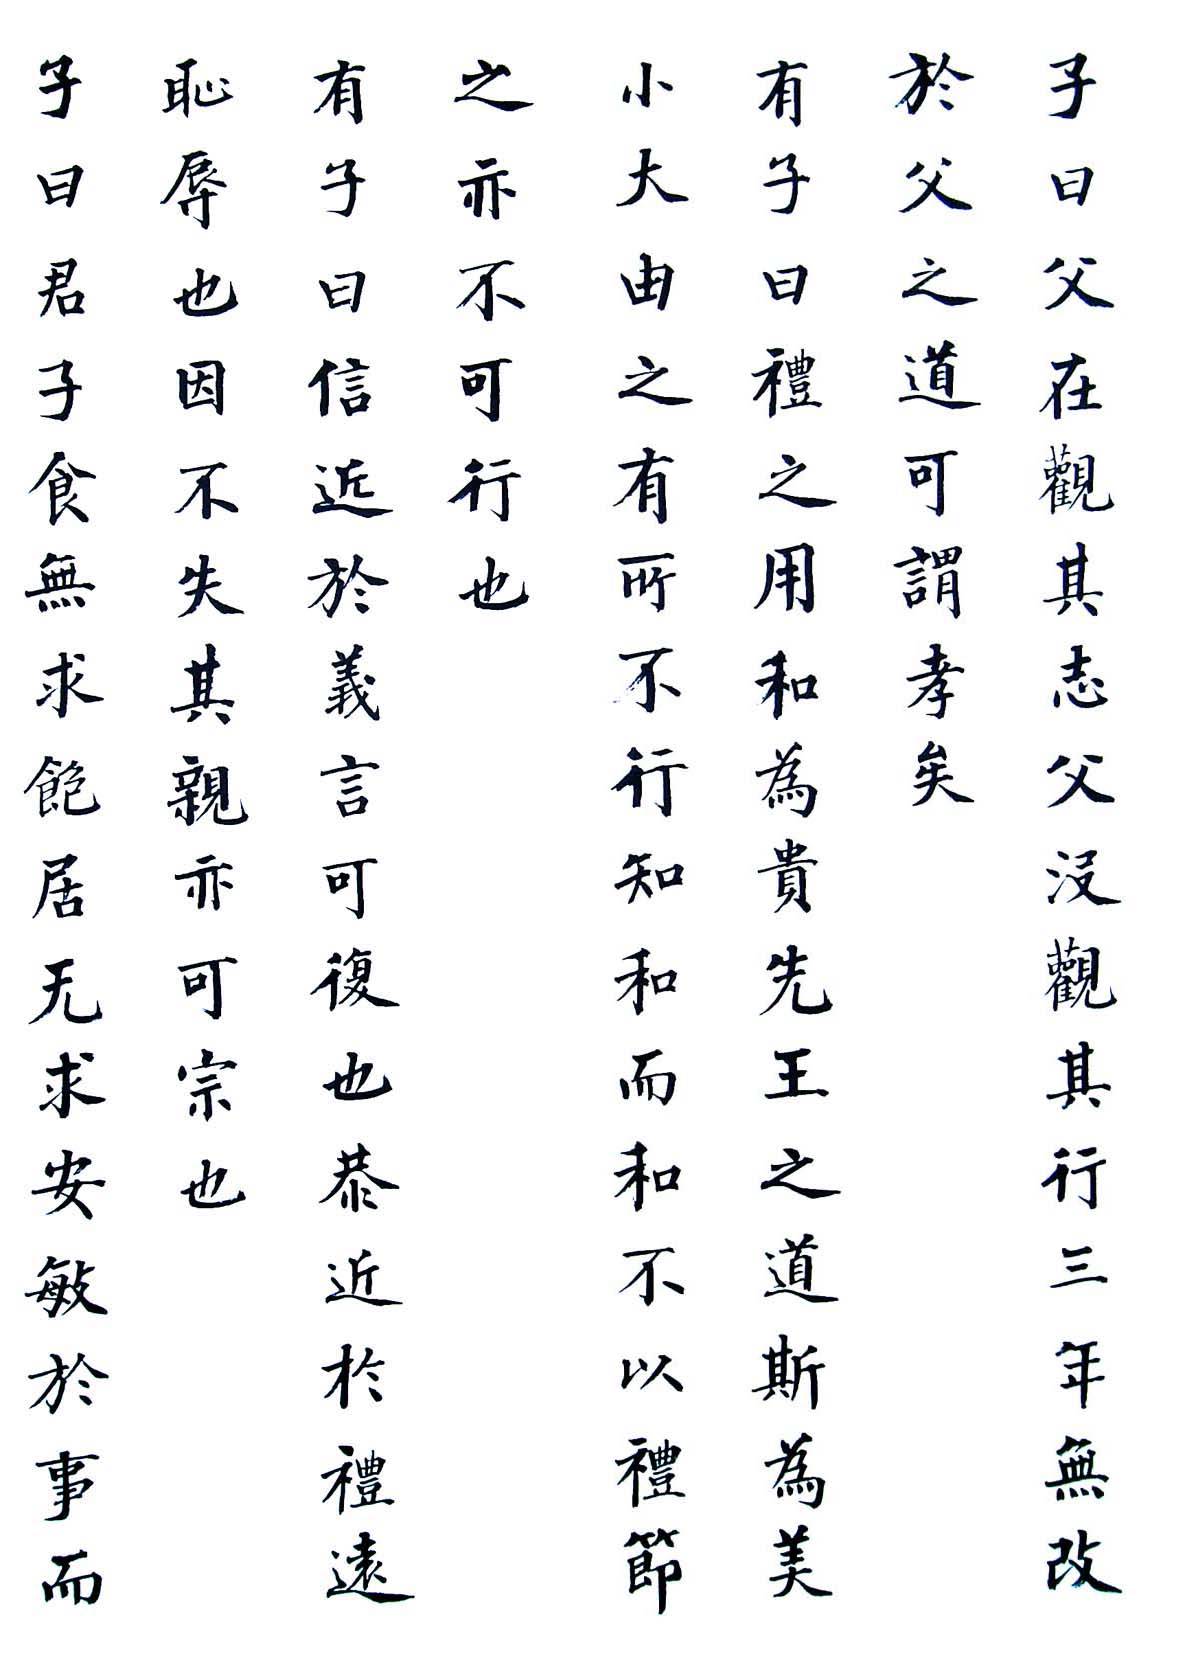 子曰父在觀其志父沒觀其行三年無改
於父之道可謂孝矣
有子曰禮之用和為貴先王之道斯為美
小大由之有所不行知和而和不以禮節
之亦不可行也
有子曰信近於義言可復也恭近於禮遠
恥辱也因不失其親亦可宗也
子曰君子食無求飽居无求安敏於事而